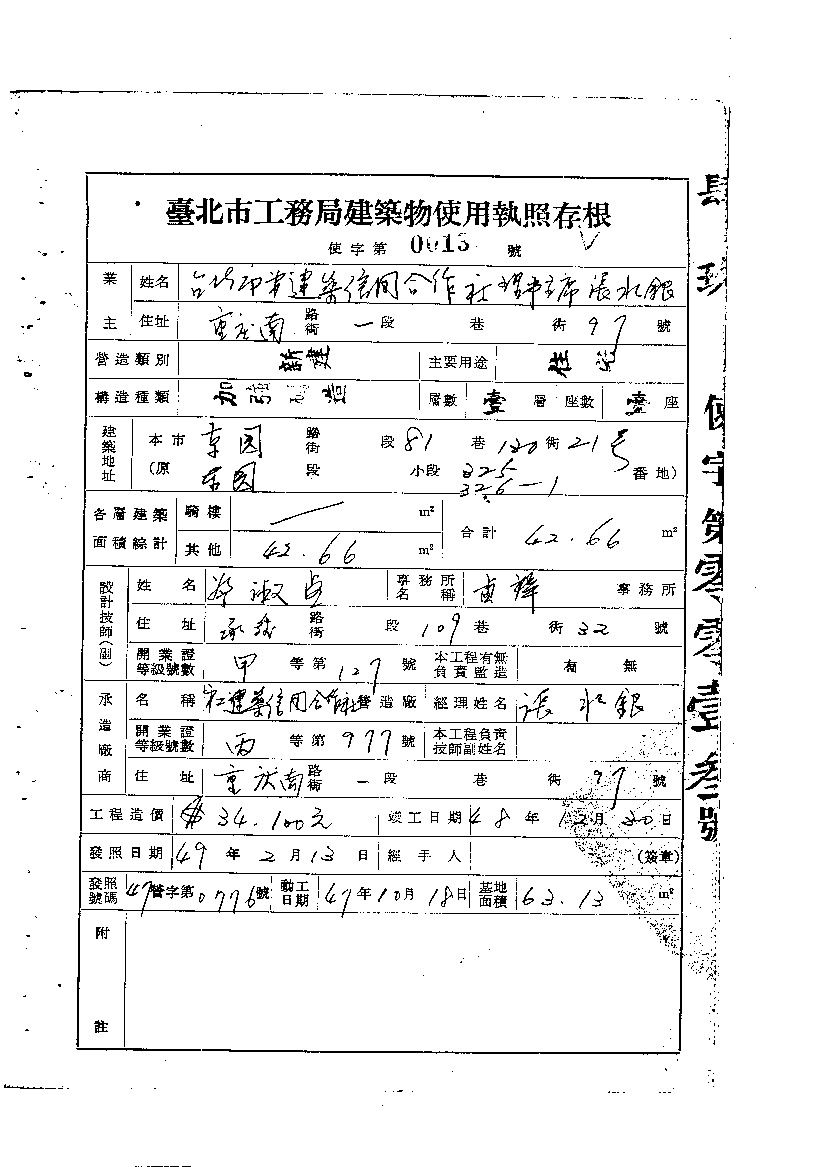 臺北市工務局建築物使用執照存根
使字第 0013 號
業主 姓名 台北市 建築信用合作社理事主席張水銀
住址 重慶南 路街 一段 巷 街 97 號
營造類別 新建 主要用途 住宅
構造種類 加強磚造 層數 壹 層 座數 壹 座
建築地址 本市 東园 路街 段 81 巷 120 街 21号
(原 東园 段 小段 325 326-1 番地)
各層建築面積綜計 騎樓 — m² 合計 42.66 m²
其他 42.66 m²
設計技師(副) 姓名 淑貞 事務所名稱 事務所
住址 承德 路街 段 109 巷 街 32 號
開業證等級號數 甲 等第 127 號 本工程有無負責監造 有 無
承造廠商 名稱 建築信用合作社營造廠 經理姓名 張水銀
開業證等級號數 丙 等第 977 號 本工程負責技師副姓名
住址 重慶南 路街 一段 巷 街 97 號
工程造價 34.100元 竣工日期 48 年 12 月 30 日
發照日期 49 年 2 月 13 日 經手人 (簽章)
發照號碼 47營字第0776號 動工日期 47年10月18日 基地面積 63.13 m²
附註
肆玖 使字第零零壹叁號